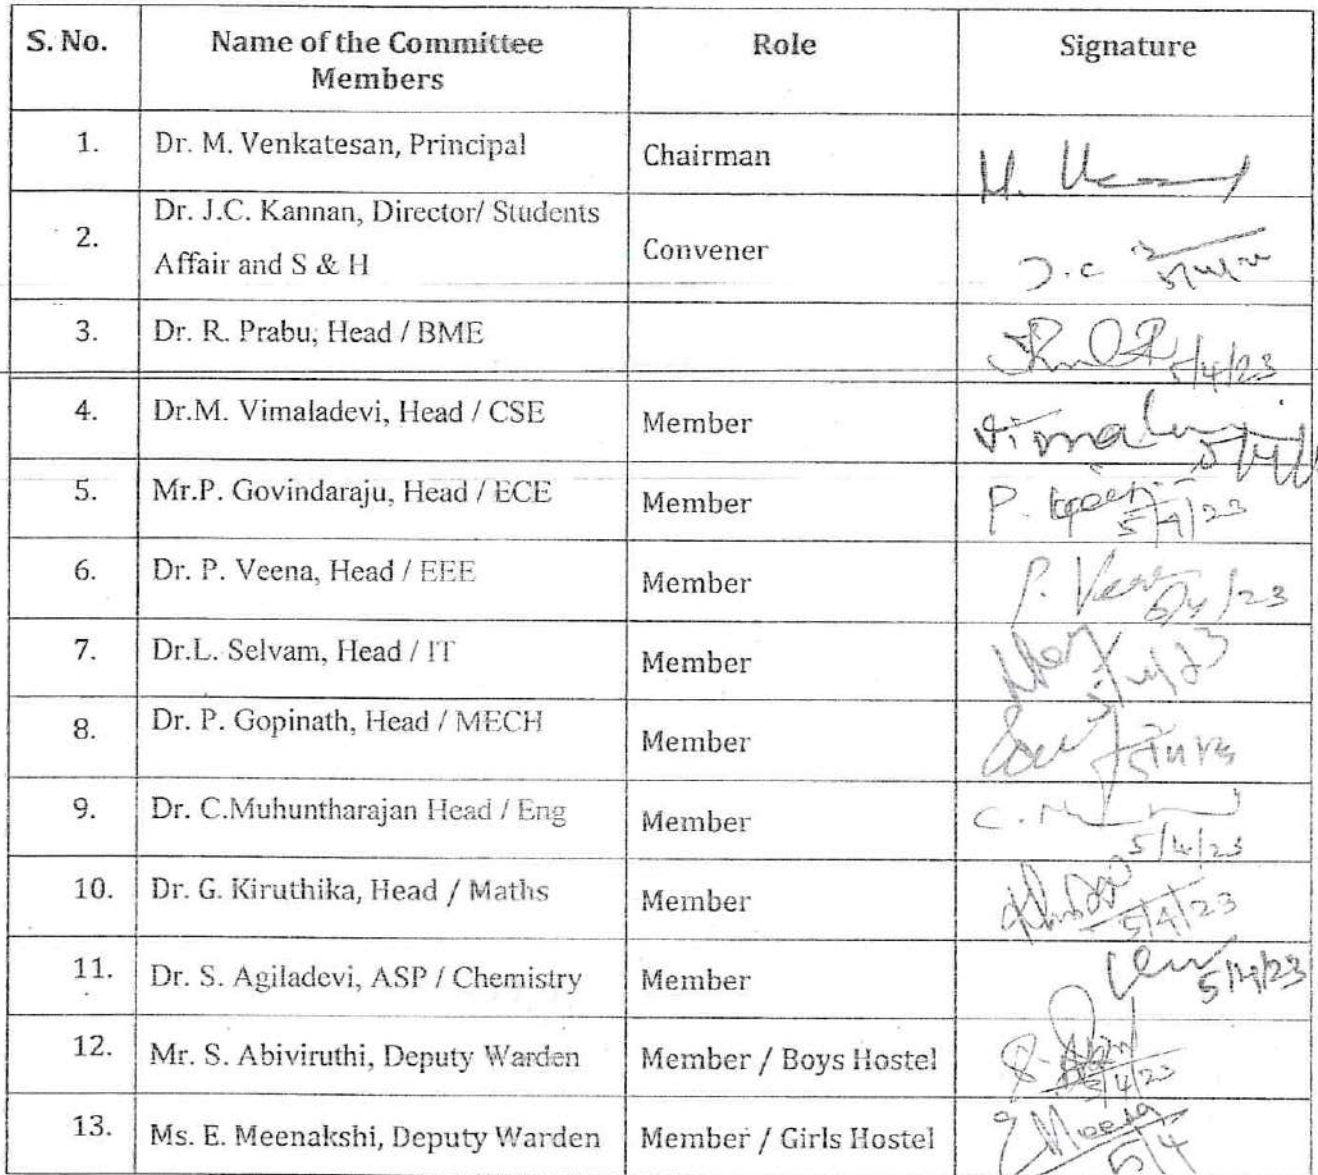 S. No. Name of the Committee Members Role Signature
1. Dr. M. Venkatesan, Principal Chairman M.
2. Dr. J.C. Kannan, Director/ Students Affair and S & H Convener J.C
3. Dr. R. Prabu, Head / BME 5/4/23
4. Dr.M. Vimaladevi, Head / CSE Member
5. Mr.P. Govindaraju, Head / ECE Member P. 5/4/23
6. Dr. P. Veena, Head / EEE Member P. 5/4/23
7. Dr.L. Selvam, Head / IT Member 5/4/23
8. Dr. P. Gopinath, Head / MECH Member
9. Dr. C.Muhuntharajan Head / Eng Member C. 5/4/23
10. Dr. G. Kiruthika, Head / Maths Member 5/4/23
11. Dr. S. Agiladevi, ASP / Chemistry Member 5/4/23
12. Mr. S. Abiviruthi, Deputy Warden Member / Boys Hostel
13. Ms. E. Meenakshi, Deputy Warden Member / Girls Hostel 5/4